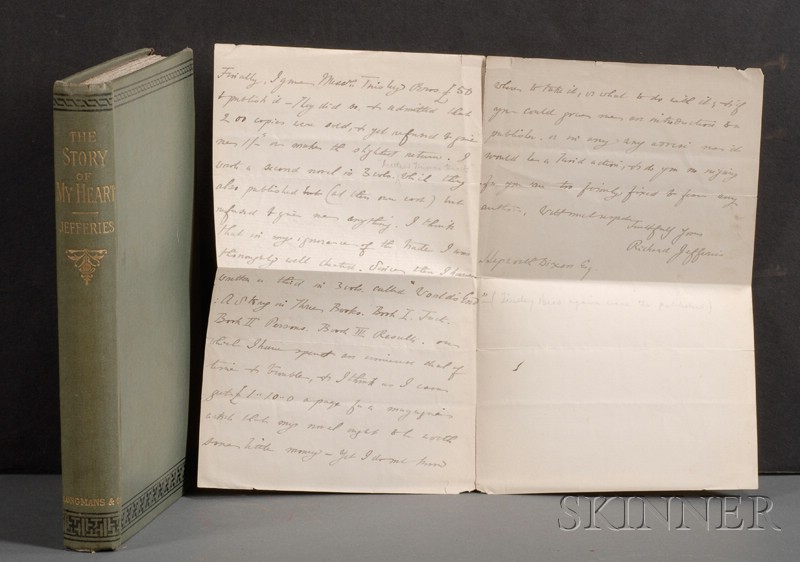 THE
STORY
OF
MY HEART
JEFFERIES
LONGMANS & Co
Finally, I gave Messrs Tinsley Bros £50
to publish it - They did so, & admitted that
200 copies were sold, & yet refused to give
me 1/- or make the slightest return. I
wrote a second novel in 3 vols. which they
also published (at their own cost) but
refused to give me anything. I think
that in my ignorance of the trade I was
thoroughly well cheated. Since then I have
written a third in 3 vols. called "World's End"
: A Story in Three Books. Book I. Facts.
Book II Persons. Book III Results. on
which I have spent an immense deal of
time & trouble, & I think as I can
get £1-10-0 a page for a magazine
article that my novel ought to be worth
some little money - Yet I do not know
where to take it, or what to do with it, & if
you could give me an introduction to a
publisher, or in any way assist me it
would be a kind action, & do you no injury
for you are too firmly fixed to fear any
author.
faithfully yours
Richard Jefferies
Hepworth Dixon Esq
SKINNER